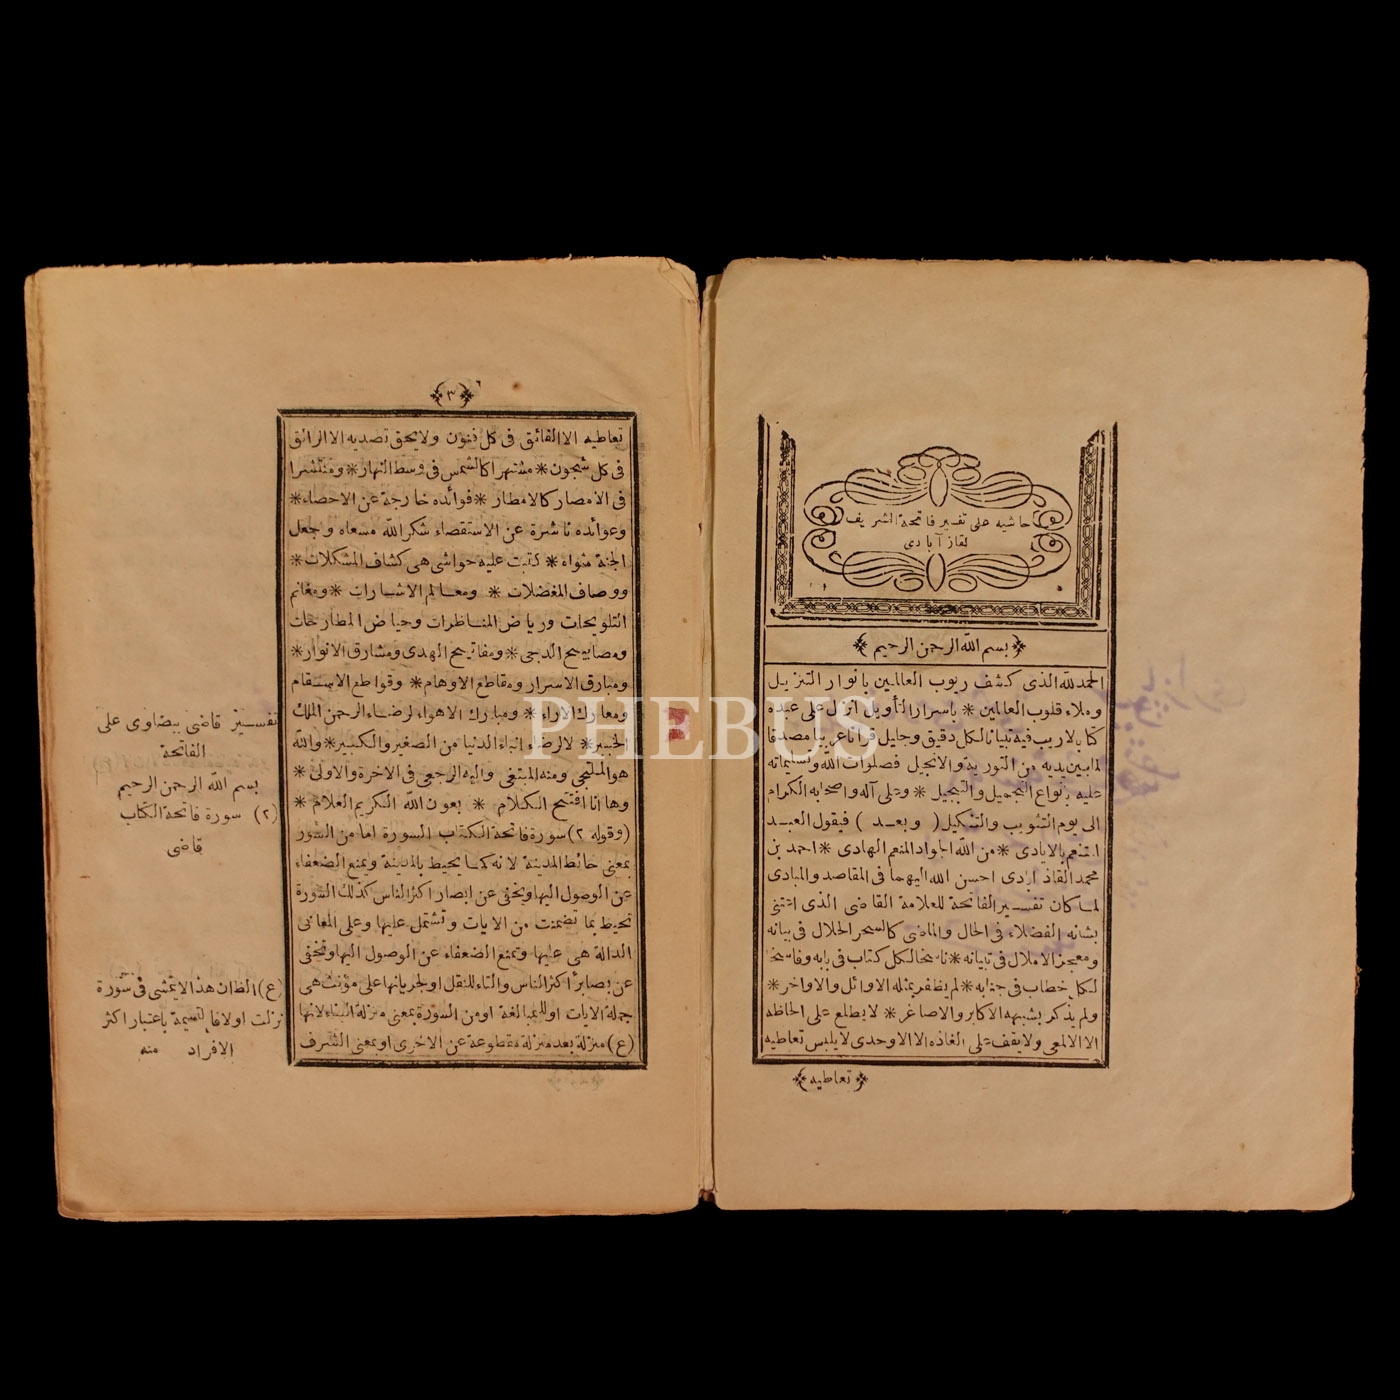 حاشيه على تفسير فاتحة الشريف
لقاز آبادى
بسم الله الرحمن الرحيم
الحمد لله الذى كشف ريوب العالمين بانوار التنزيل
وملاء قلوب العالمين * باسرار التأويل انزل على عبده
كتابا لاريب فيه تبيانا لكل دقيق وجليل قرآنا عربيا مصدقا
لما بين يديه من التورية والانجيل فصلوات الله وتسليماته
عليه بانواع التجميل والتبجيل * وعلى آله واصحابه الكرام
الى يوم التثويب والتنكيل ( وبعد ) فيقول العبد
المتنعم بالايادى * من الله الجواد المنعم الهادى * احمد بن
محمد القاذ ابادى احسن الله اليهما فى المقاصد والمبادى
لما كان تفسير الفاتحة للعلامة القاضى الذى اعتنى
بشانه الفضلاء فى الحال والماضى كالسحر الحلال فى بيانه
ومعجز الاملال فى تبيانه * ناسخا لكل كتاب فى بابه وفاسخا
لكل خطاب فى جنابه * لم يظفر بمثله الاوائل والاواخر *
ولم يذكر بشبهه الاكابر والاصاغر * لا يطلع على الحاظه
الا الالمعى ولا يقف على الغاذه الا الاوحدى لا يلبس تعاطيه
تعاطيه
٣
تعاطيه الا الفائق فى كل فنون ولا يحق تصديه الا الرائق
فى كل شجون * مشتهرا كالشمس فى وسط النهار * ومنتشرا
فى الامصار كالامطار * فوائده خارجة عن الاحصاء *
وعوائده ناشرة عن الاستقصاء شكر الله مسعاه وجعل
الجنة مثواه * كتبت عليه حواشى هى كشاف المشكلات *
ووصاف المعضلات * ومعالم الاشارات * ومغانم
التلويحات ورياض المناظرات وحياض المطارحات
ومصابيح الدجى * ومفاتيح الهدى ومشارق الانوار *
ومبارق الاسرار ومقاطع الاوهام * وقواطع الاسقام
ومعارك الاراء * ومبارك الاهواء لرضاء الرحمن الملك
الخبير * لا لرضاء ابناء الدنيا من الصغير والكبير * والله
هو الملتجى ومنه المبتغى واليه الرجعى فى الاخرة والاولى *
وها انا افتتح الكلام * بعون الله الكريم العلام *
(وقوله ٢) سورة فاتحة الكتاب السورة اما من السور
بمعنى حائط المدينة لانه كما يحيط بالمدينة ويمنع الضعفاء
عن الوصول اليها ويخفى عن ابصار اكثر الناس كذلك السورة
تحيط بما تضمنت من الايات وتشتمل عليها وعلى المعانى
الدالة هى عليها وتمنع الضعفاء عن الوصول اليها وتخفى
عن بصائر اكثر الناس والتاء للنقل او لجريانها على مؤنث هى
جملة الايات او للمبالغة او من السورة بمعنى منزلة البناء لانها
(ع) منزلة بعد منزلة مقطوعة عن الاخرى او بمعنى الشرف
تفسير قاضى بيضاوى على
الفاتحة
بسم الله الرحمن الرحيم
(٢) سورة فاتحة الكتاب
قاضى
(ع) الظان هذا لا يتمشى فى سورة
نزلت اولا فالتسمية باعتبار اكثر
الافراد منه
PHEBUS